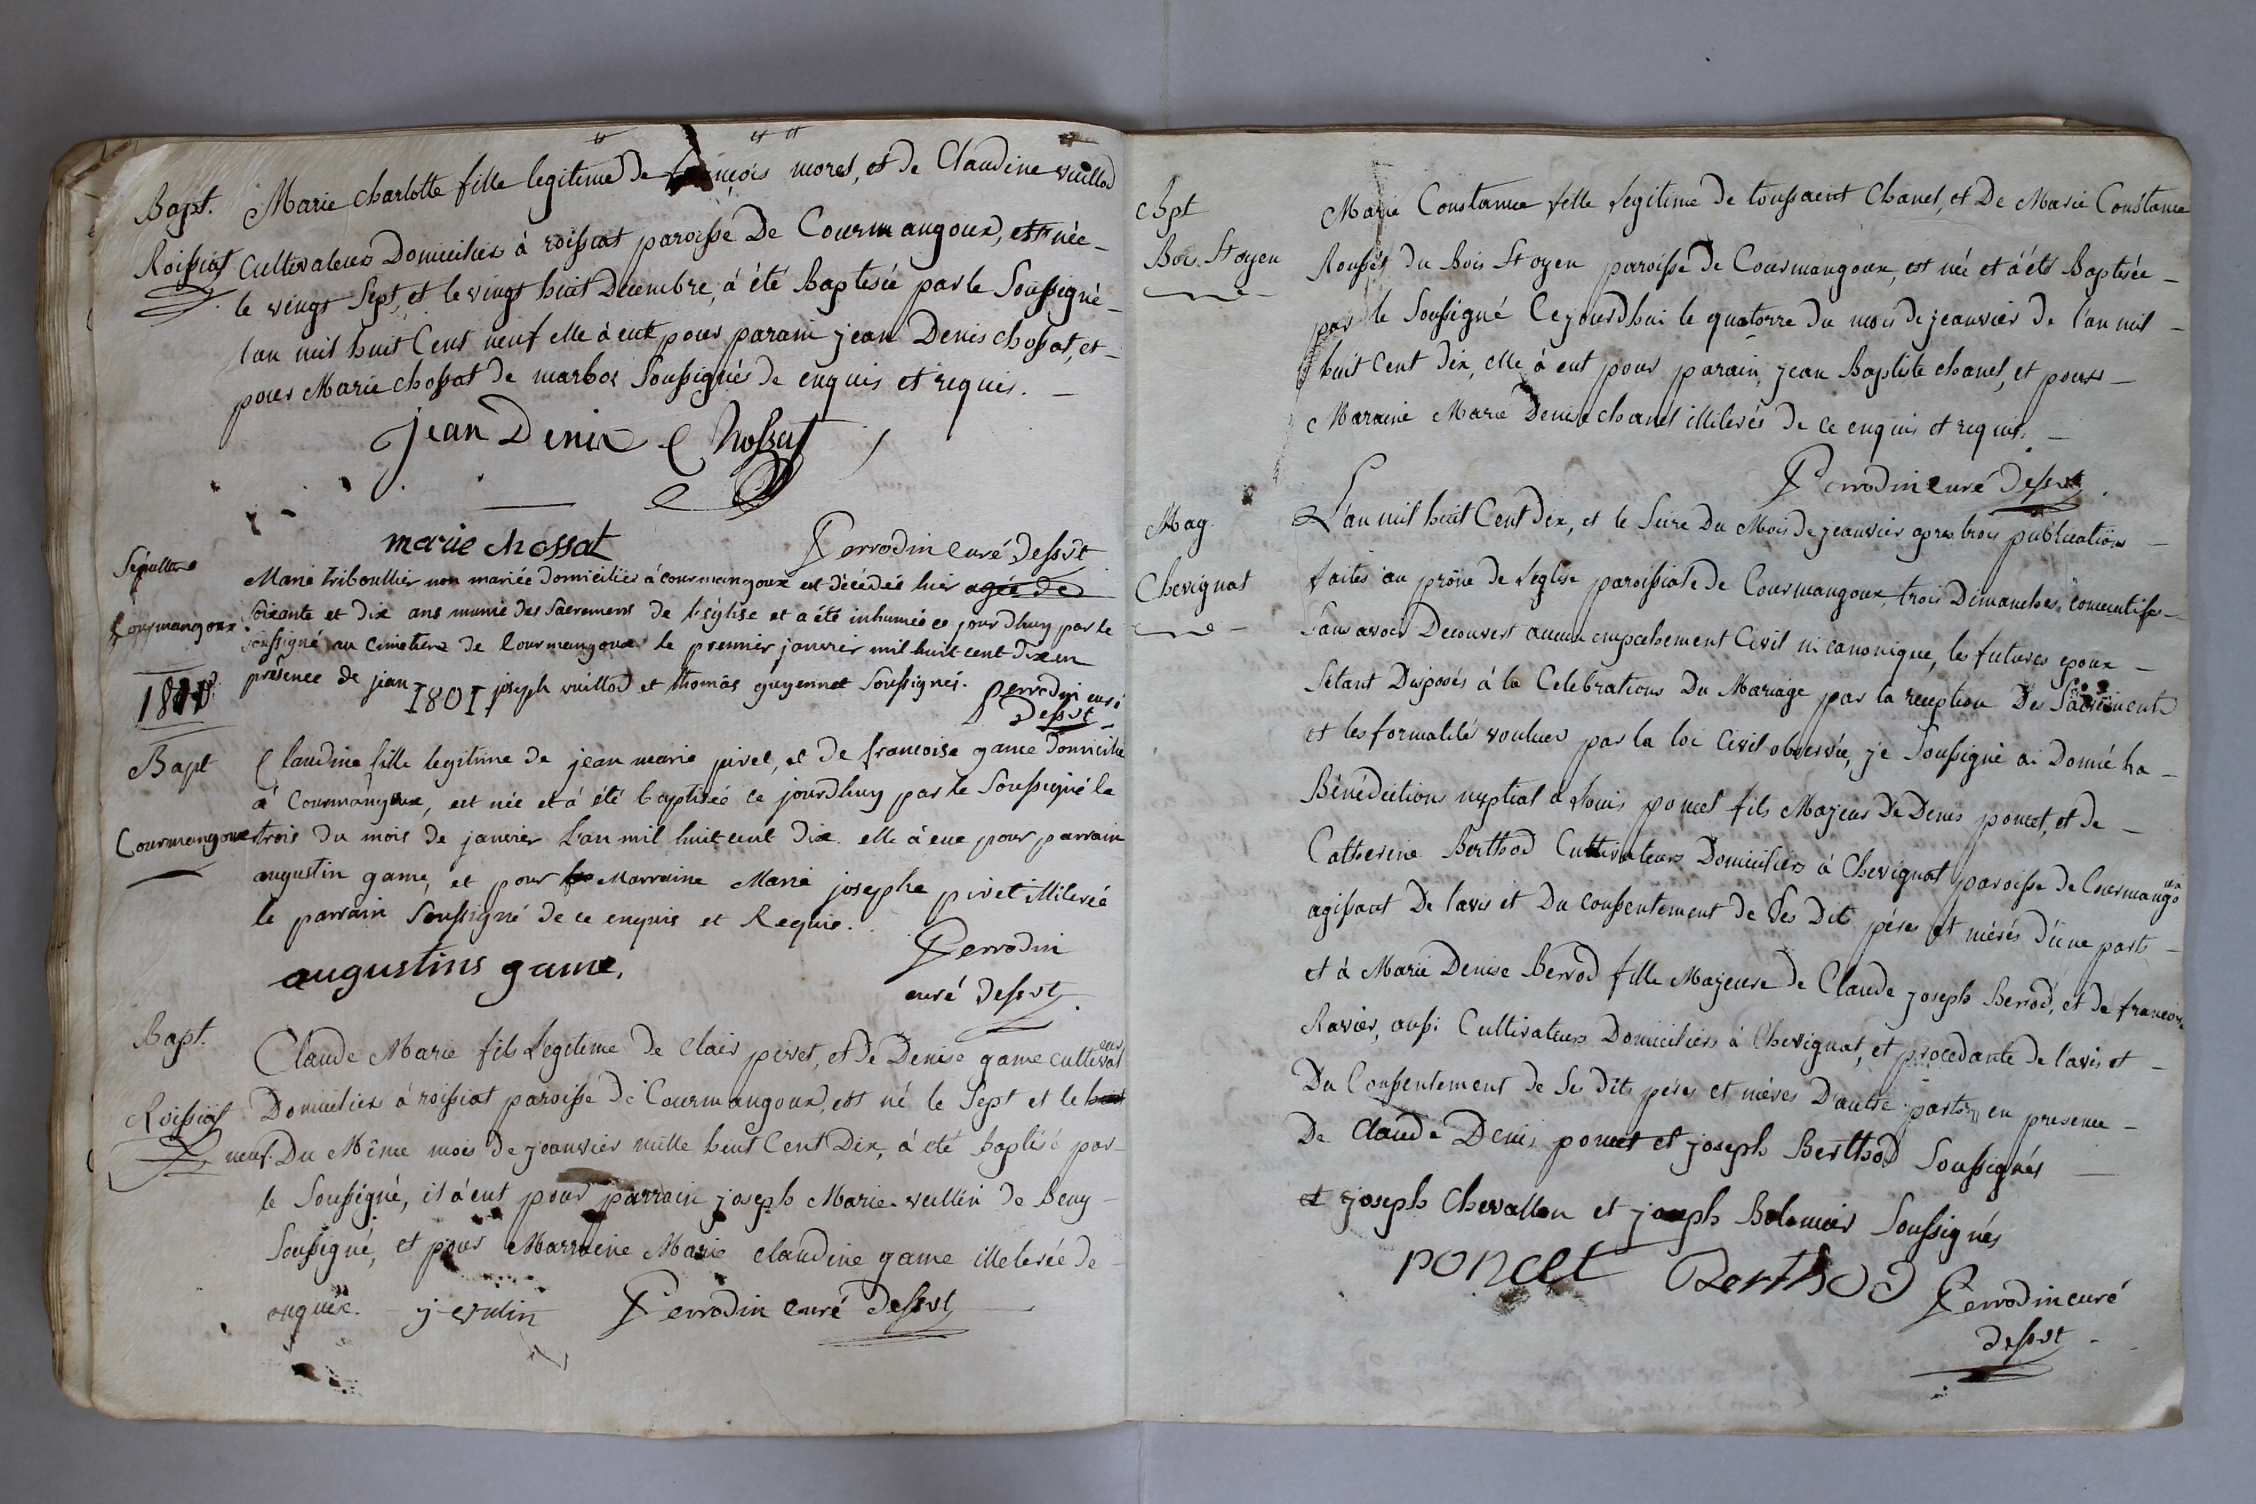 Bapt. Marie charlotte fille legitime de françois morel, et de Claudine vuillod
Roissiat Cultivateurs Domiciliés à roissiat paroisse De Courmangoux, est née
le vingt Sept, et le vingt huit Decembre, à été Baptisée par le Soussigné
l'an mil huit Cent neuf elle à eut pour parain jean Denis chossat, et
pour Marie chossat de marboz Soussignés de enquis et requis.
jean Denis Chossat
marie chossat Perrodin curé dessvt
Sépulture Marie triboullier non mariée domiciliée à courmangoux est décédée hier agée de
Courmangoux Soixante et dix ans munie des Sacremens de l'église et a été inhumée ce jourdhuy par le
soussigné au cimetiere de Courmangoux le premier janvier mil huit cent dix en
présence de jean joseph vuillod et thomas guyennet Soussignés. Perrodin curé
1810 1801 dessvt
Bapt Claudine fille legitime de jean marie pivet, et de francoise game domicilié
à Courmangoux, est née et à été baptisée ce jourdhuy par le Soussigné le
Courmangoux trois du mois de janvier L'an mil huit cent dix elle à eue pour parrain
augustin game, et pour Marraine Marie josephe pivet illiterée
le parrain Soussigné de ce enquis et Requis.
augustins game. Perrodin
curé dessvt
Bapt. Claude Marie fils Legitime de Clair pivet, et de Denise game cultivateurs
Roissiat Domiciliés à roissiat paroisse de Courmangoux, est né le Sept et le huit
neuf Du Même mois de jeanvier mille huit Cent Dix, à été baptisé par
le Soussigné, il à eut pour parrain joseph Marie vullin de Beny
Soussigné, et pour Marraine Marie claudine game illeterée de
enquise. j vulin Perrodin curé dessvt
Bpt Marie Constance fille Legitime de toussaent Chanel, et De Marie Constance
Bois St oyen Roussel du Bois St oyen paroisse de Courmangoux, est née et à été Baptisée
par le Soussigné Cejourdhui le quatorze du mois de jeanvier de l'an mil
huit Cent dix, elle à eut pour parain, jean Baptiste chanel, et pour
Maraine Marie Denise chanel illiterés de ce enquis et requis.
Perrodin curé dessvt
Mag. L'an mil huit Cent dix, et le Seize Du Mois de jeanvier apres trois publications
Chevignat faites au prône de l'eglise paroissiale de Courmangoux, trois Dimanches consecutifs
Sans avoir Decouvert aucun empechement Civil ni canonique, les futures epoux
Setant Disposés à la Celebrations Du Mariage par la reception Des Sacriments
et les formalité voulues par la loi Civil observée, je Soussigné ai Donné la
Bénédiction nuptial a Louis poncet fils Majeur De Denis poncet, et de
Catherine Berthod Cultivateurs Domiciliers à Chevignat paroisse de Courmangoux
agissant De l'avis et Du consentement de Ses Dits péres et méres d'une part
et à Marie Denise Berrod fille Majeure de Claude joseph Berrod, et de francoise
Ravier, aussi Cultivateurs Domiciliers à Chevignat, et procedante de l'avis et
Du Consentement de Ses dits peres et méres D'autre part en presence
De Claude Denis poncet et joseph Berthod Soussignés
et joseph Chevallon et joseph Bolomier Soussignés
poncet Berthod Perrodin curé
dessvt